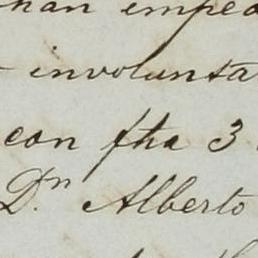 han imped
involunta
con fha 3
Dn. Alberto